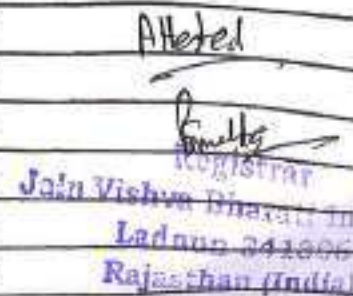 Attested
Registrar
Jain Vishva Bharati In
Ladnun 341306
Rajasthan (India)